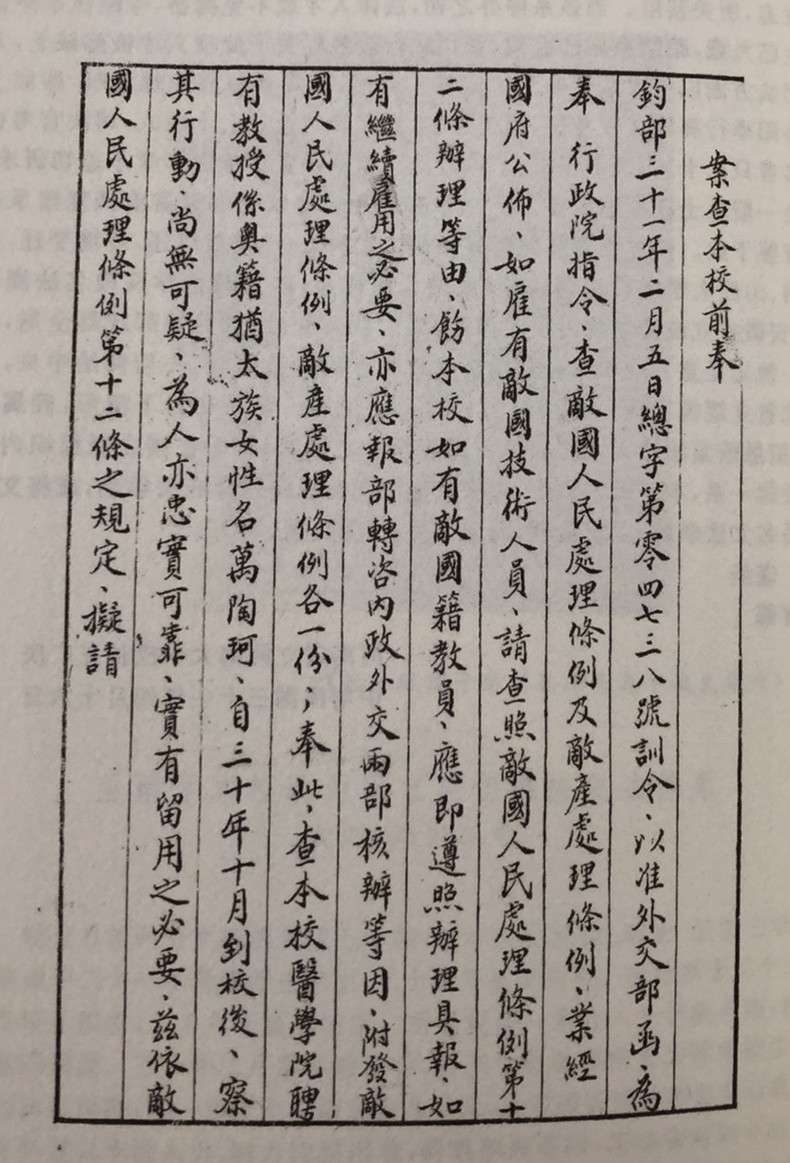 案查本校前奉
鈞部三十一年二月五日總字第零四七三八號訓令、以准外交部函、為
奉　行政院指令、查敵國人民處理條例及敵產處理條例、業經
國府公佈、如雇有敵國技術人員、請查照敵國人民處理條例第十
二條辦理等由、飭本校如有敵國籍教員、應即遵照辦理具報、如
有繼續雇用之必要、亦應報部轉咨內政外交兩部核辦等因、附發敵
國人民處理條例、敵產處理條例各一份；奉此、查本校醫學院聘
有教授係奧籍猶太族女性名萬陶珂、自三十年十月到校後、察
其行動、尚無可疑、為人亦忠實可靠、實有留用之必要、茲依敵
國人民處理條例第十二條之規定、擬請